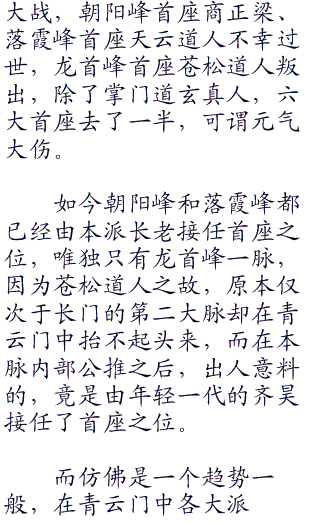 大战，朝阳峰首座商正梁、
落霞峰首座天云道人不幸过
世，龙首峰首座苍松道人叛
出，除了掌门道玄真人，六
大首座去了一半，可谓元气
大伤。
如今朝阳峰和落霞峰都
已经由本派长老接任首座之
位，唯独只有龙首峰一脉，
因为苍松道人之故，原本仅
次于长门的第二大脉却在青
云门中抬不起头来，而在本
脉内部公推之后，出人意料
的，竟是由年轻一代的齐昊
接任了首座之位。
而仿佛是一个趋势一
般，在青云门中各大派